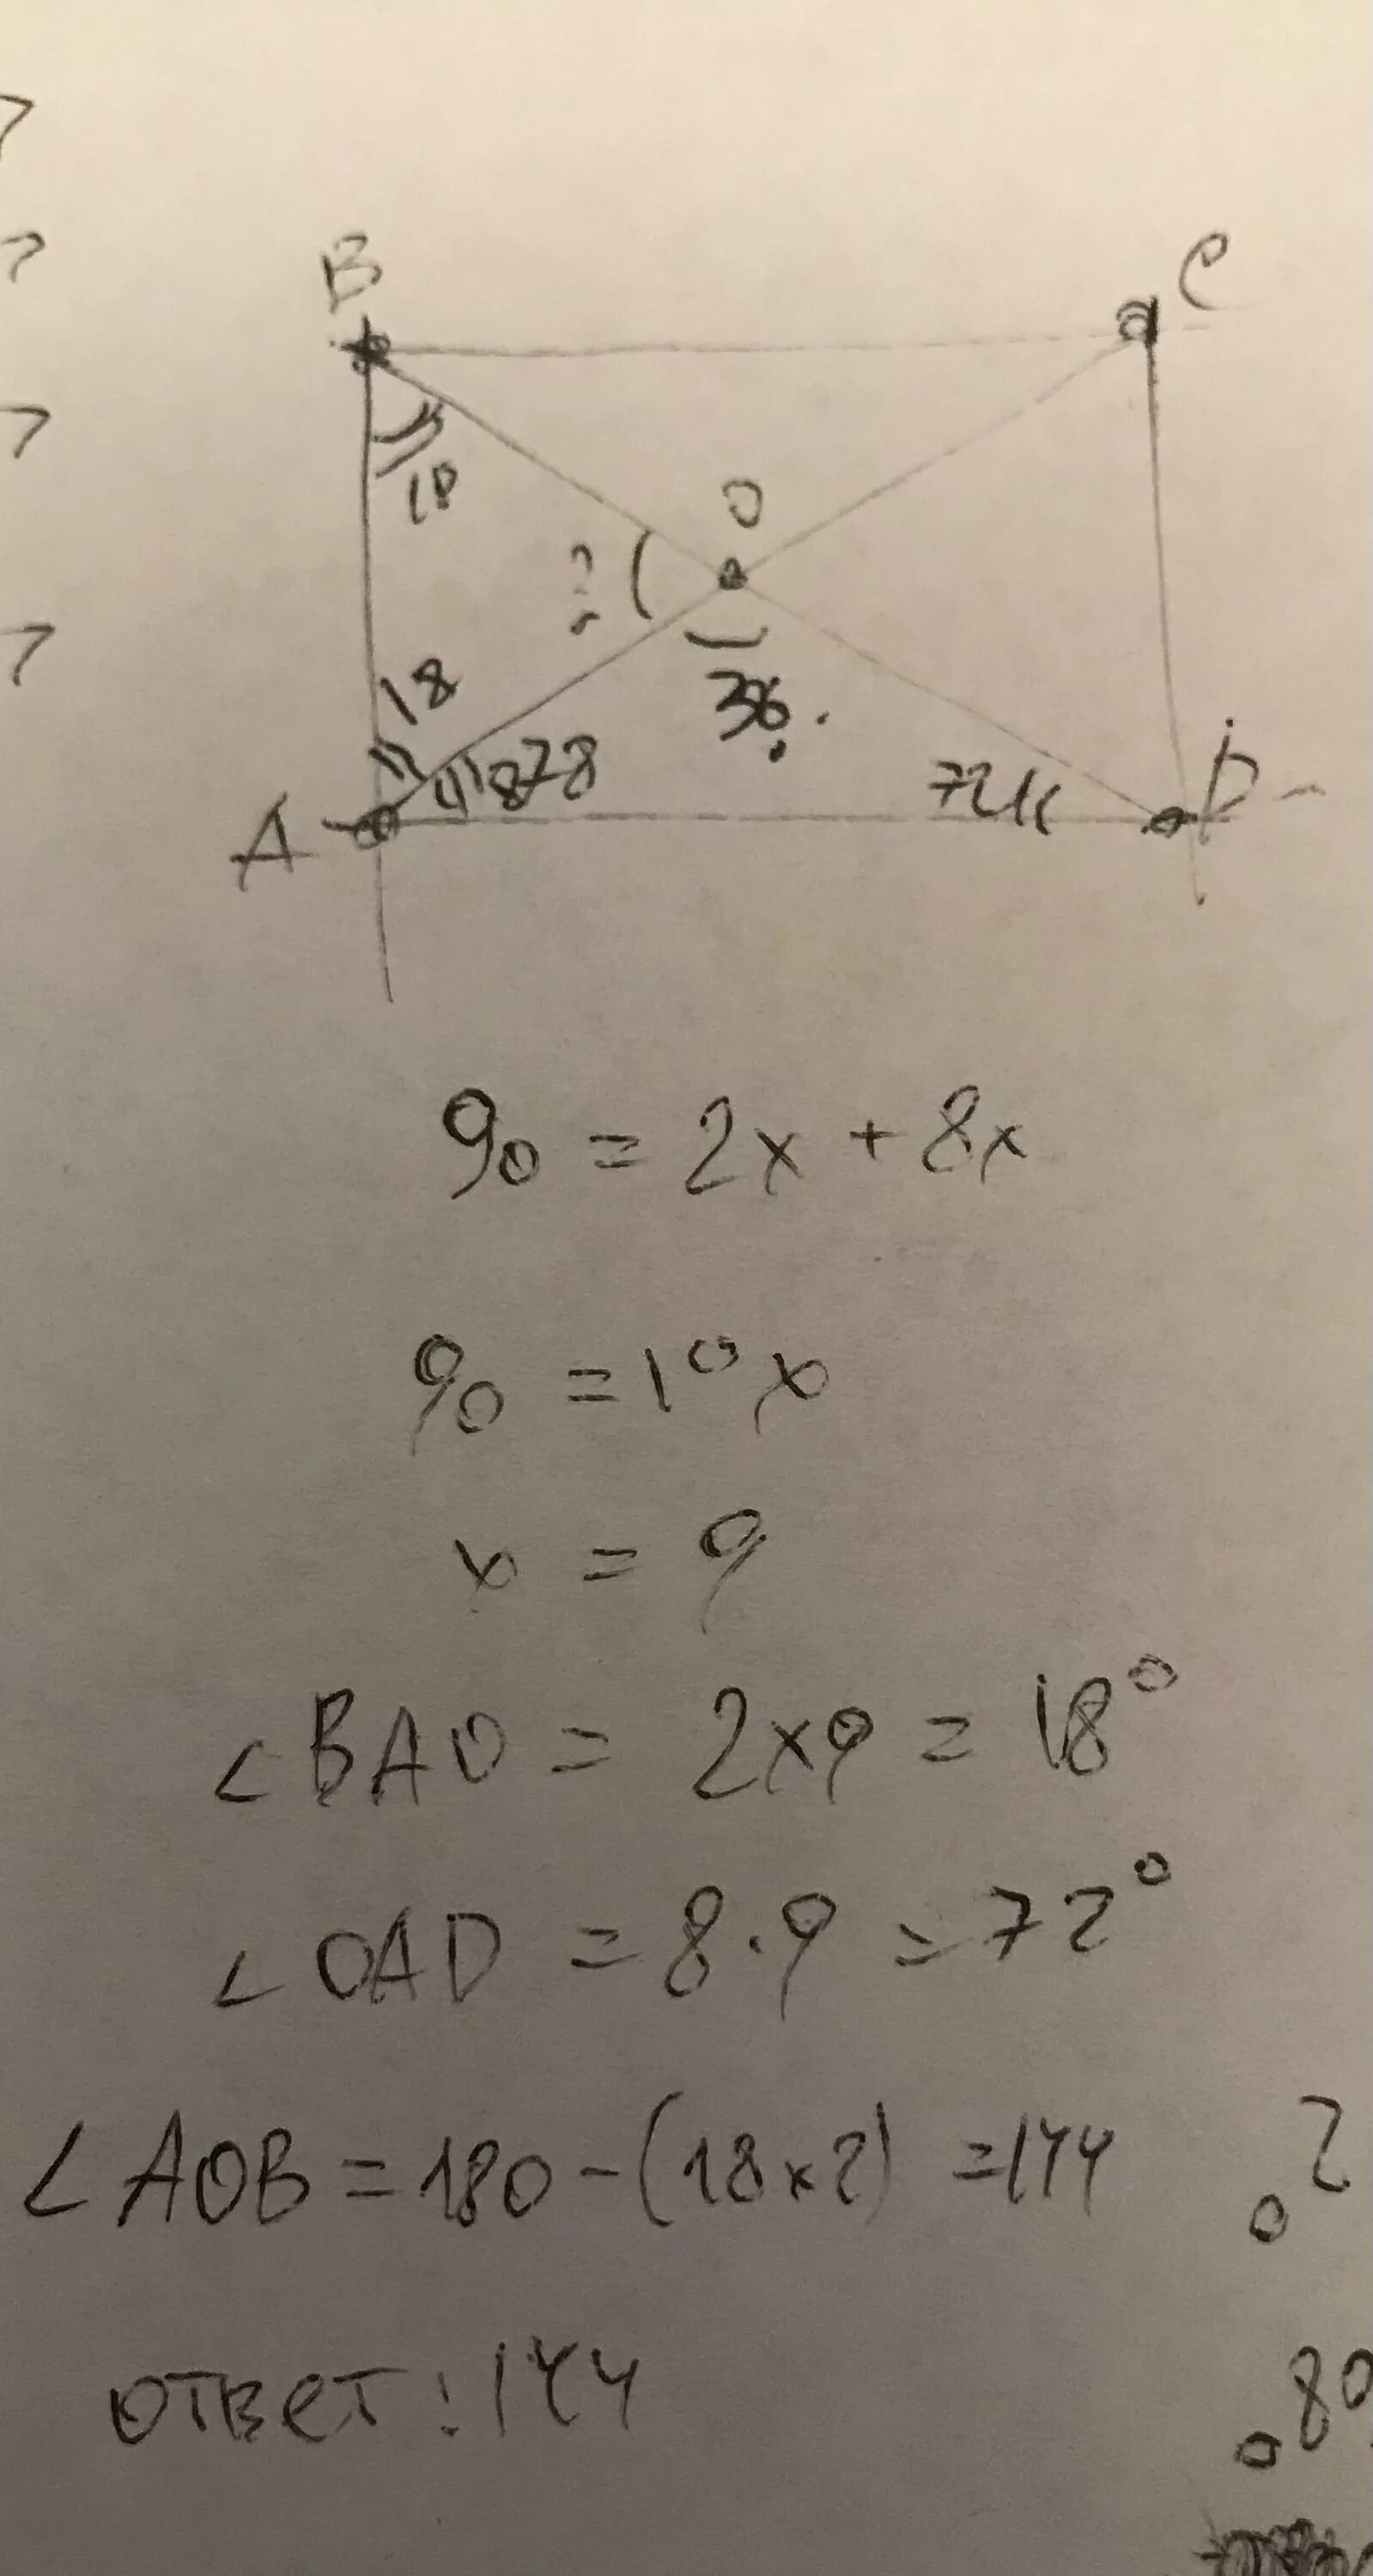 B
C
18
O
?
18
36.
72
A
D
90 = 2x + 8x
90 = 10x
x = 9
∠BAO = 2x9 = 18°
∠OAD = 8·9 = 72°
∠AOB = 180 - (18x2) = 144
ответ: 144